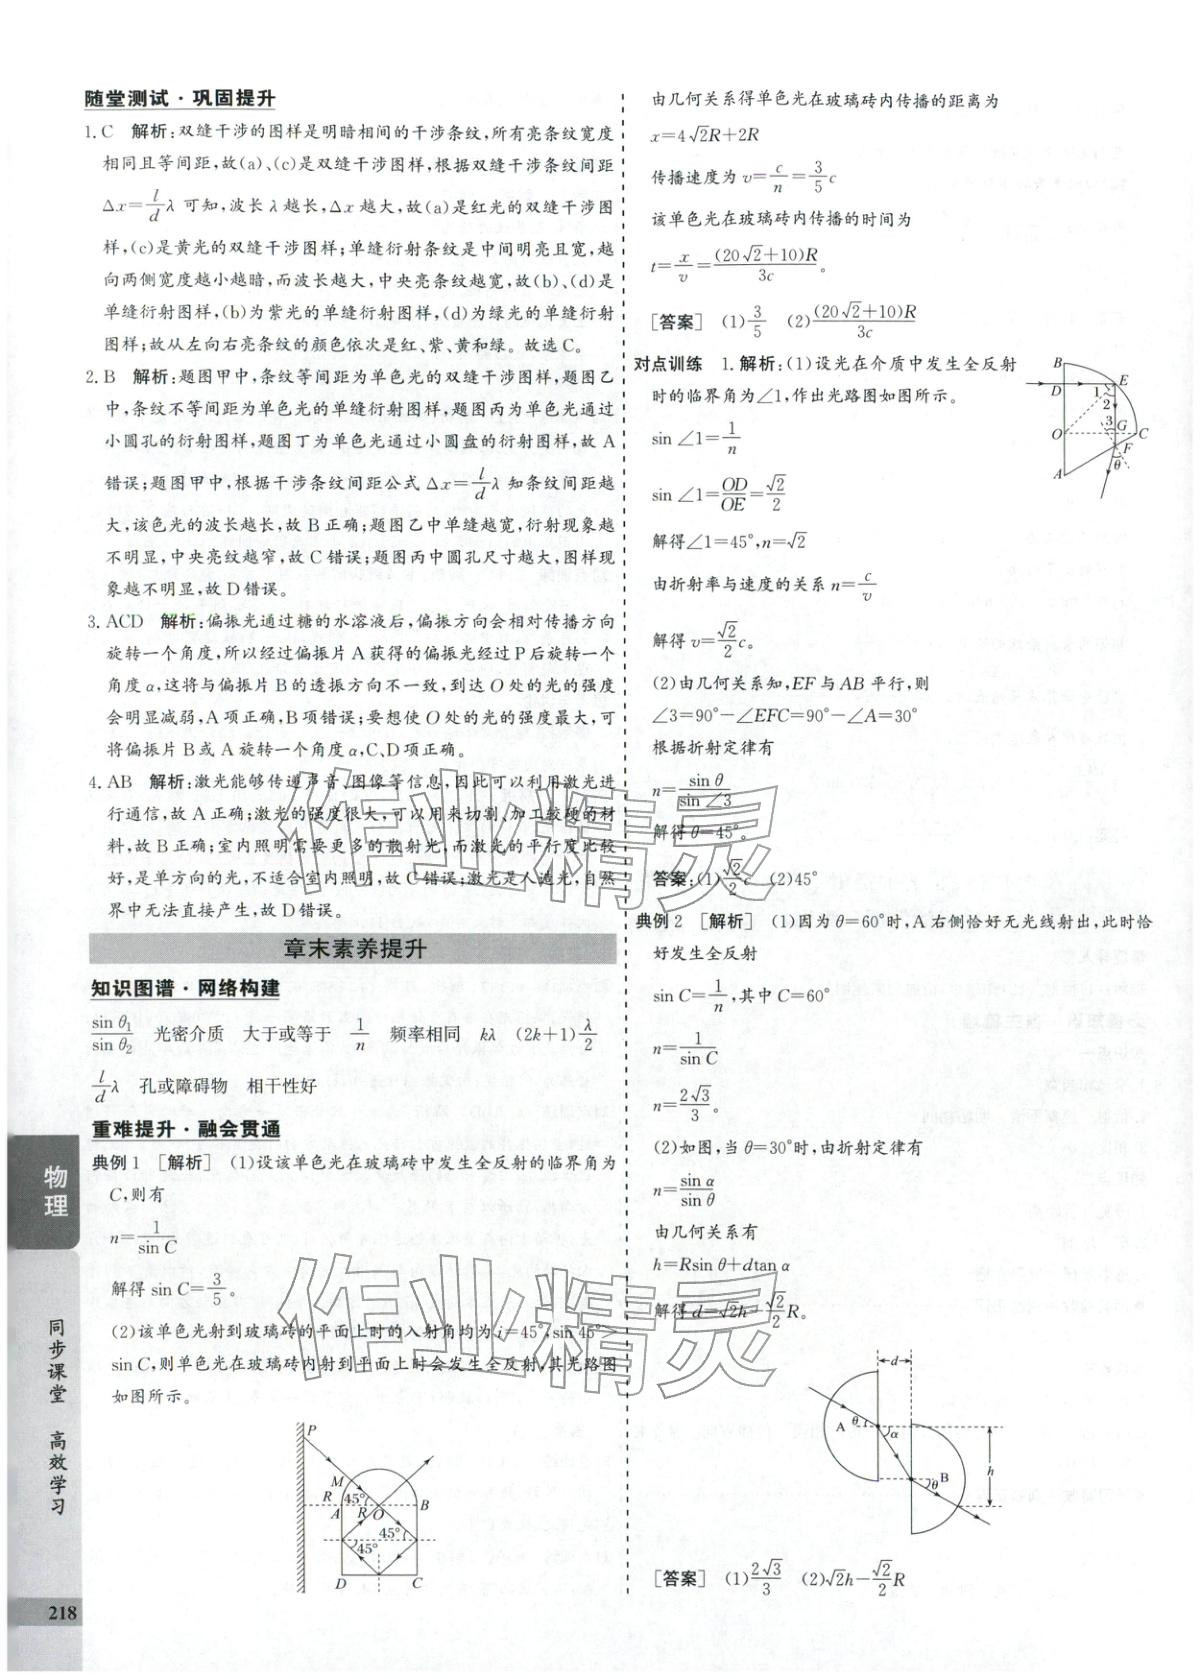 随堂测试·巩固提升
1. C 解析:双缝干涉的图样是明暗相间的干涉条纹,所有亮条纹宽度
相同且等间距,故(a)、(c)是双缝干涉图样,根据双缝干涉条纹间距
Δx=l/d λ 可知,波长 λ 越长,Δx 越大,故(a)是红光的双缝干涉图
样,(c)是黄光的双缝干涉图样;单缝衍射条纹是中间明亮且宽,越
向两侧宽度越小越暗,而波长越大,中央亮条纹越宽,故(b)、(d)是
单缝衍射图样,(b)为紫光的单缝衍射图样,(d)为绿光的单缝衍射
图样;故从左向右亮条纹的颜色依次是红、紫、黄和绿。故选C。
2. B 解析:题图甲中,条纹等间距为单色光的双缝干涉图样,题图乙
中,条纹不等间距为单色光的单缝衍射图样,题图丙为单色光通过
小圆孔的衍射图样,题图丁为单色光通过小圆盘的衍射图样,故 A
错误;题图甲中,根据干涉条纹间距公式 Δx=l/d λ 知条纹间距越
大,该色光的波长越长,故 B 正确;题图乙中单缝越宽,衍射现象越
不明显,中央亮纹越窄,故 C 错误;题图丙中圆孔尺寸越大,图样现
象越不明显,故 D 错误。
3. ACD 解析:偏振光通过糖的水溶液后,偏振方向会相对传播方向
旋转一个角度,所以经过偏振片 A 获得的偏振光经过 P 后旋转一个
角度 α,这将与偏振片 B 的透振方向不一致,到达 O 处的光的强度
会明显减弱,A 项正确,B 项错误;要想使 O 处的光的强度最大,可
将偏振片 B 或 A 旋转一个角度 α,C、D 项正确。
4. AB 解析:激光能够传递声音、图像等信息,因此可以利用激光进
行通信,故 A 正确;激光的强度很大,可以用来切割、加工较硬的材
料,故 B 正确;室内照明需要更多的散射光,而激光的平行度比较
好,是单方向的光,不适合室内照明,故 C 错误;激光是人造光,自然
界中无法直接产生,故 D 错误。
章末素养提升
知识图谱·网络构建
sin θ₁/sin θ₂ 光密介质 大于或等于 1/n 频率相同 kλ (2k+1)λ/2
l/d λ 孔或障碍物 相干性好
重难提升·融会贯通
典例 1 [解析] (1)设该单色光在玻璃砖中发生全反射的临界角为
C,则有
n=1/sin C
解得 sin C=3/5。
(2)该单色光射到玻璃砖的平面上时的入射角均为 i=45°,sin 45°>
sin C,则单色光在玻璃砖内射到平面上时会发生全反射,其光路图
如图所示。
P
M
R 45°
A R O B
45°
45°
D C
由几何关系得单色光在玻璃砖内传播的距离为
x=4√2R+2R
传播速度为 v=c/n=3/5 c
该单色光在玻璃砖内传播的时间为
t=x/v=(20√2+10)R/3c。
[答案] (1)3/5 (2)(20√2+10)R/3c
对点训练 1. 解析:(1)设光在介质中发生全反射
时的临界角为∠1,作出光路图如图所示。
sin ∠1=1/n
sin ∠1=OD/OE=√2/2
解得∠1=45°,n=√2
由折射率与速度的关系 n=c/v
解得 v=√2/2 c。
B
D 1 E
2
O 3 G C
F
A θ
(2)由几何关系知,EF 与 AB 平行,则
∠3=90°−∠EFC=90°−∠A=30°
根据折射定律有
n=sin θ/sin ∠3
解得 θ=45°。
答案:(1)√2/2 c (2)45°
典例 2 [解析] (1)因为 θ=60°时,A 右侧恰好无光线射出,此时恰
好发生全反射
sin C=1/n,其中 C=60°
n=1/sin C
n=2√3/3。
(2)如图,当 θ=30°时,由折射定律有
n=sin α/sin θ
由几何关系有
h=Rsin θ+dtan α
解得 d=√2h−√2/2 R。
d
A θ
α
B
θ
h
[答案] (1)2√3/3 (2)√2h−√2/2 R
物理
同步课堂 高效学习
218
作业精灵
作业精灵